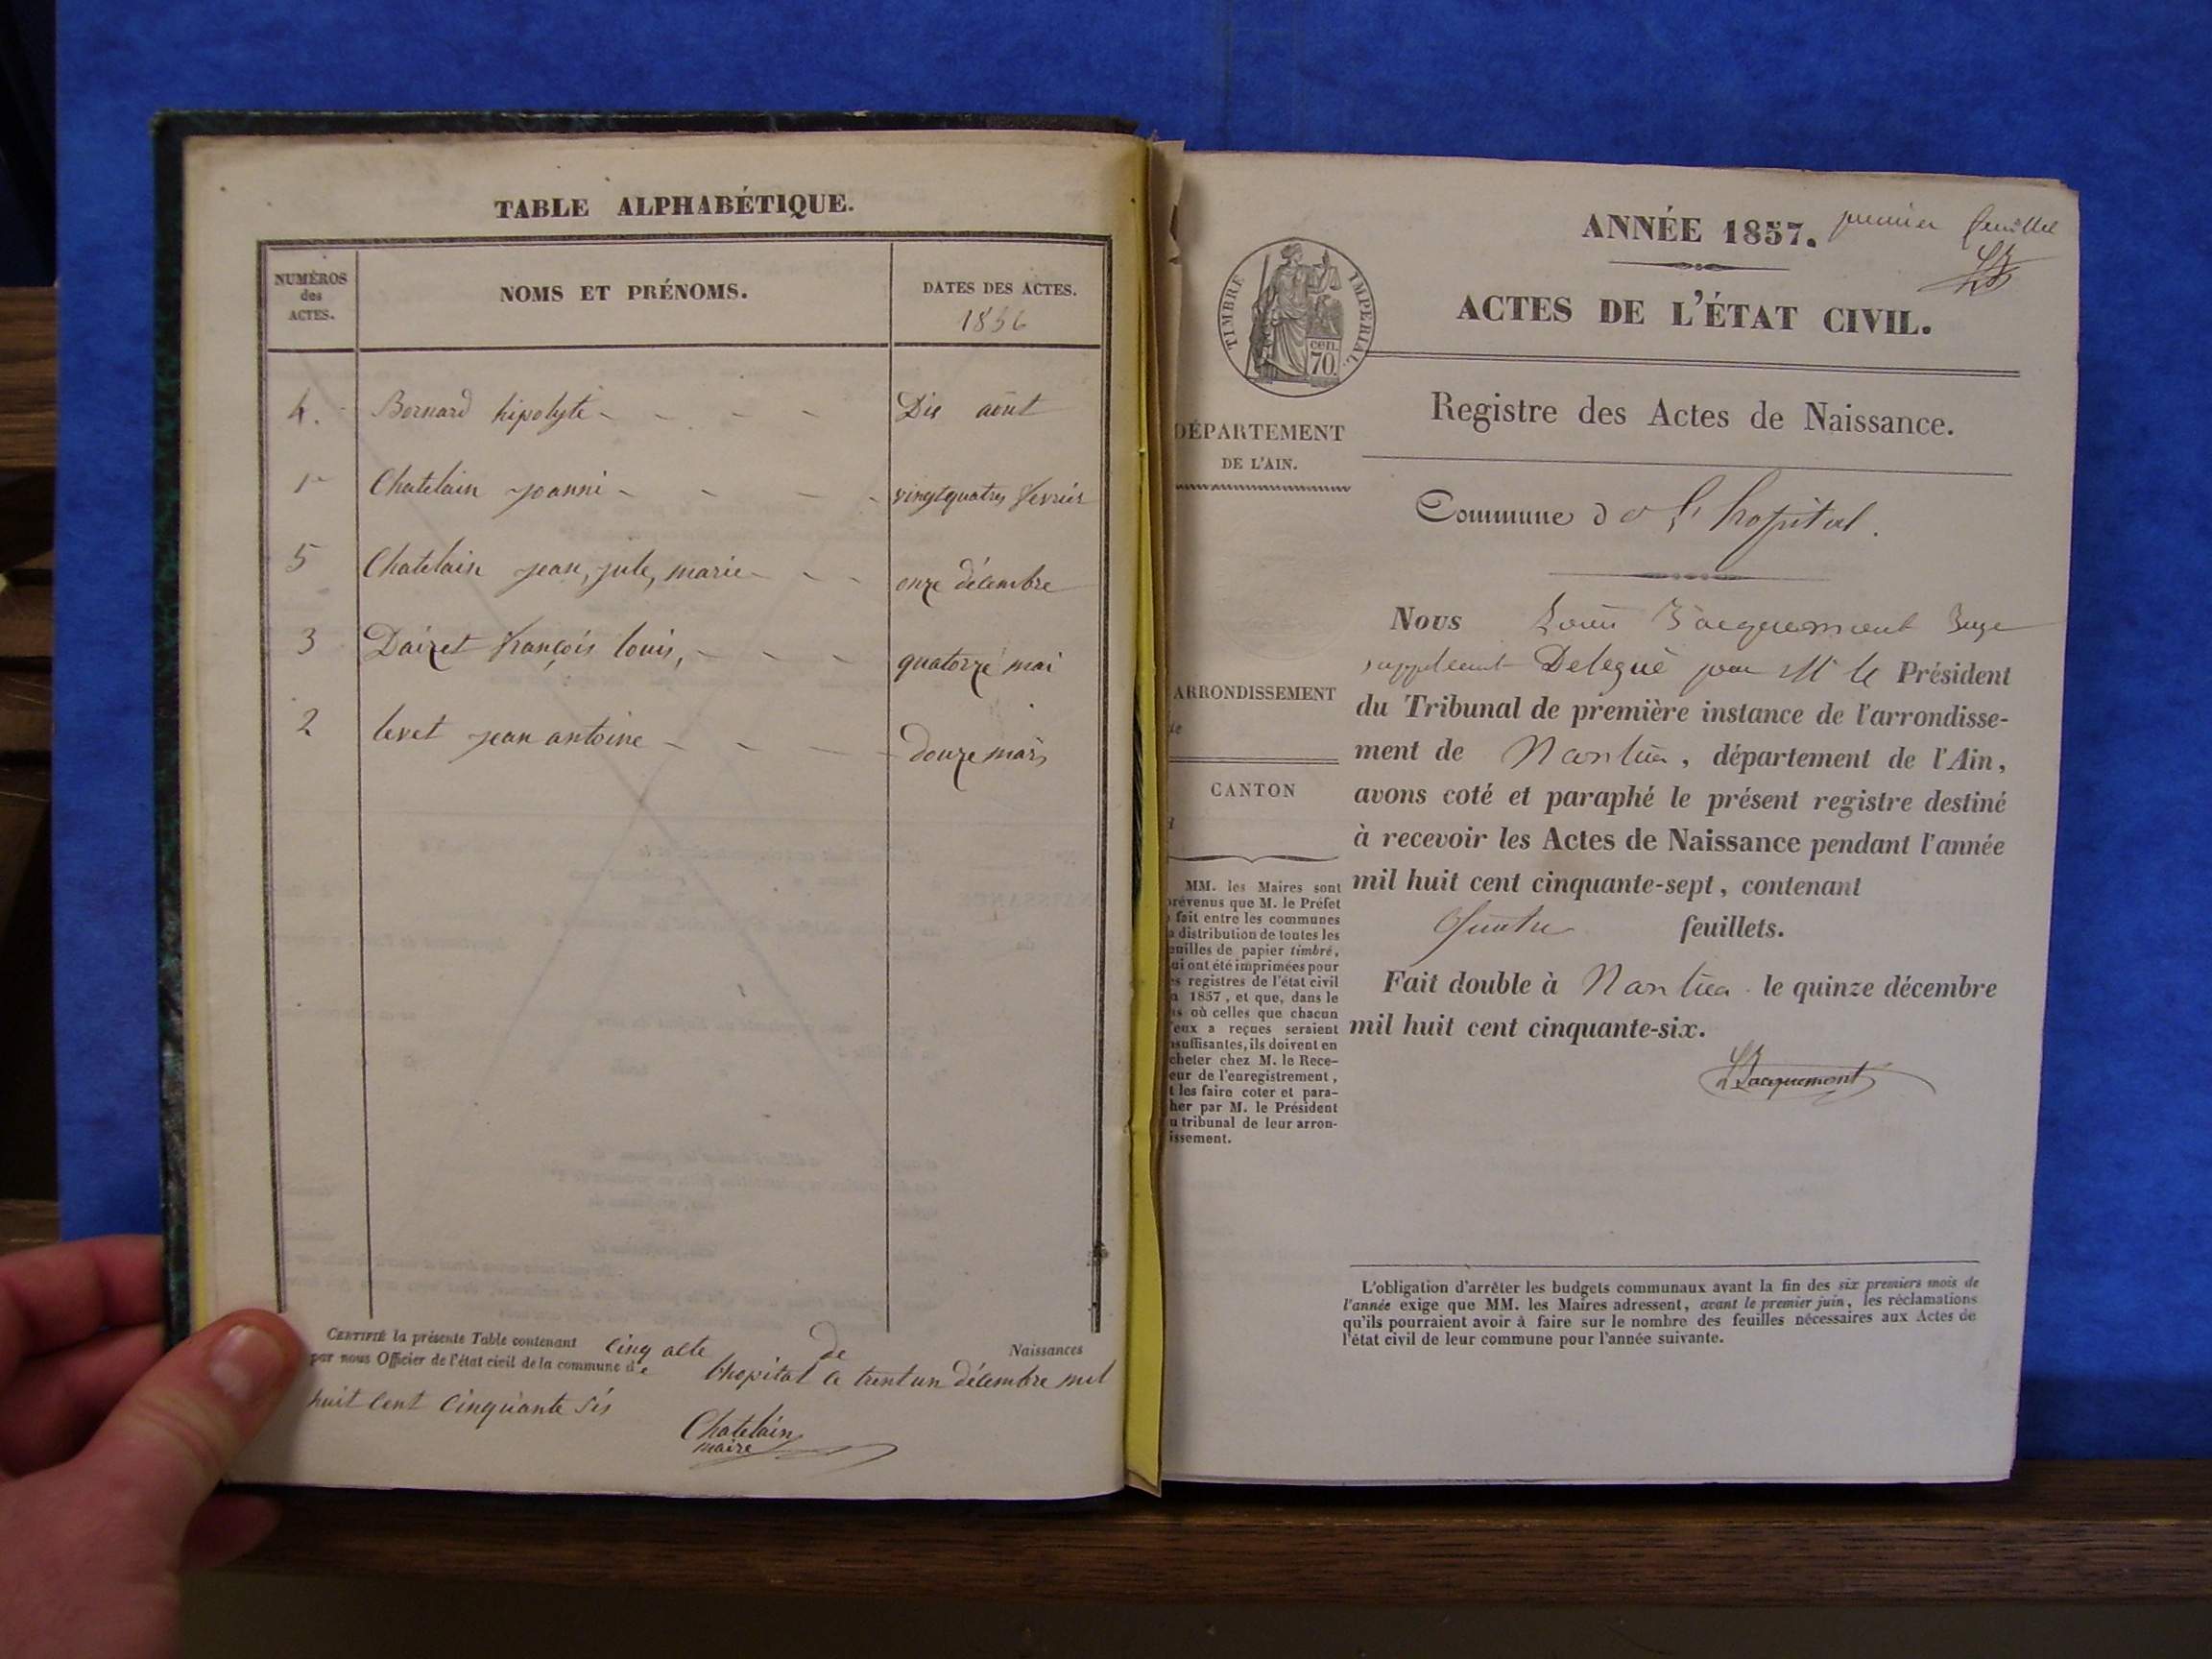 TABLE ALPHABÉTIQUE.
NUMÉROS
des
ACTES.
NOMS ET PRÉNOMS.
DATES DES ACTES.
1856
4. Bornard hipolyte - - - - Dix août
1 Chatelain joanni - - - - vingtquatre fevrier
5 Chatelain jean, jule, marie - - - onze décembre
3 Dairet françois louis, - - - quatorze mai
2 levet jean antoine - - - - douze mars
CERTIFIÉ la présente Table contenant cinq acte de Naissances
par nous Officier de l'état civil de la commune de
lhopital le trentun décembre mil
huit cent cinquante six
Chatelain
maire
ANNÉE 1857. premier feuillet
ACTES DE L'ÉTAT CIVIL.
TIMBRE IMPÉRIAL.
cen.
70.
Registre des Actes de Naissance.
DÉPARTEMENT
DE L'AIN.
Commune de l'hopital.
ARRONDISSEMENT
CANTON
Nous Louis Jacquemont Juge
suppléant Délegué par Mr le Président
du Tribunal de première instance de l'arrondisse-
ment de Nantua, département de l'Ain,
avons coté et paraphé le présent registre destiné
à recevoir les Actes de Naissance pendant l'année
mil huit cent cinquante-sept, contenant
Quatre feuillets.
Fait double à Nantua le quinze décembre
mil huit cent cinquante-six.
LJacquemont
MM. les Maires sont
révenus que M. le Préfet
fait entre les communes
distribution de toutes les
euilles de papier timbré,
ui ont été imprimées pour
s registres de l'état civil
1857, et que, dans le
s où celles que chacun
eux a reçues seraient
suffisantes, ils doivent en
cheter chez M. le Rece-
eur de l'enregistrement,
t les faire coter et para-
her par M. le Président
u tribunal de leur arron-
issement.
L'obligation d'arrêter les budgets communaux avant la fin des six premiers mois de
l'année exige que MM. les Maires adressent, avant le premier juin, les réclamations
qu'ils pourraient avoir à faire sur le nombre des feuilles nécessaires aux Actes de
l'état civil de leur commune pour l'année suivante.